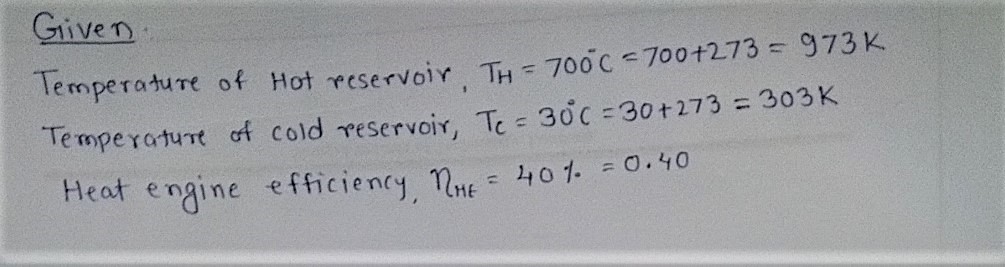 Given.
Temperature of Hot reservoir, TH = 700°C = 700+273 = 973K
Temperature of cold reservoir, Tc = 30°C = 30+273 = 303K
Heat engine efficiency, ηHE = 40% = 0.40